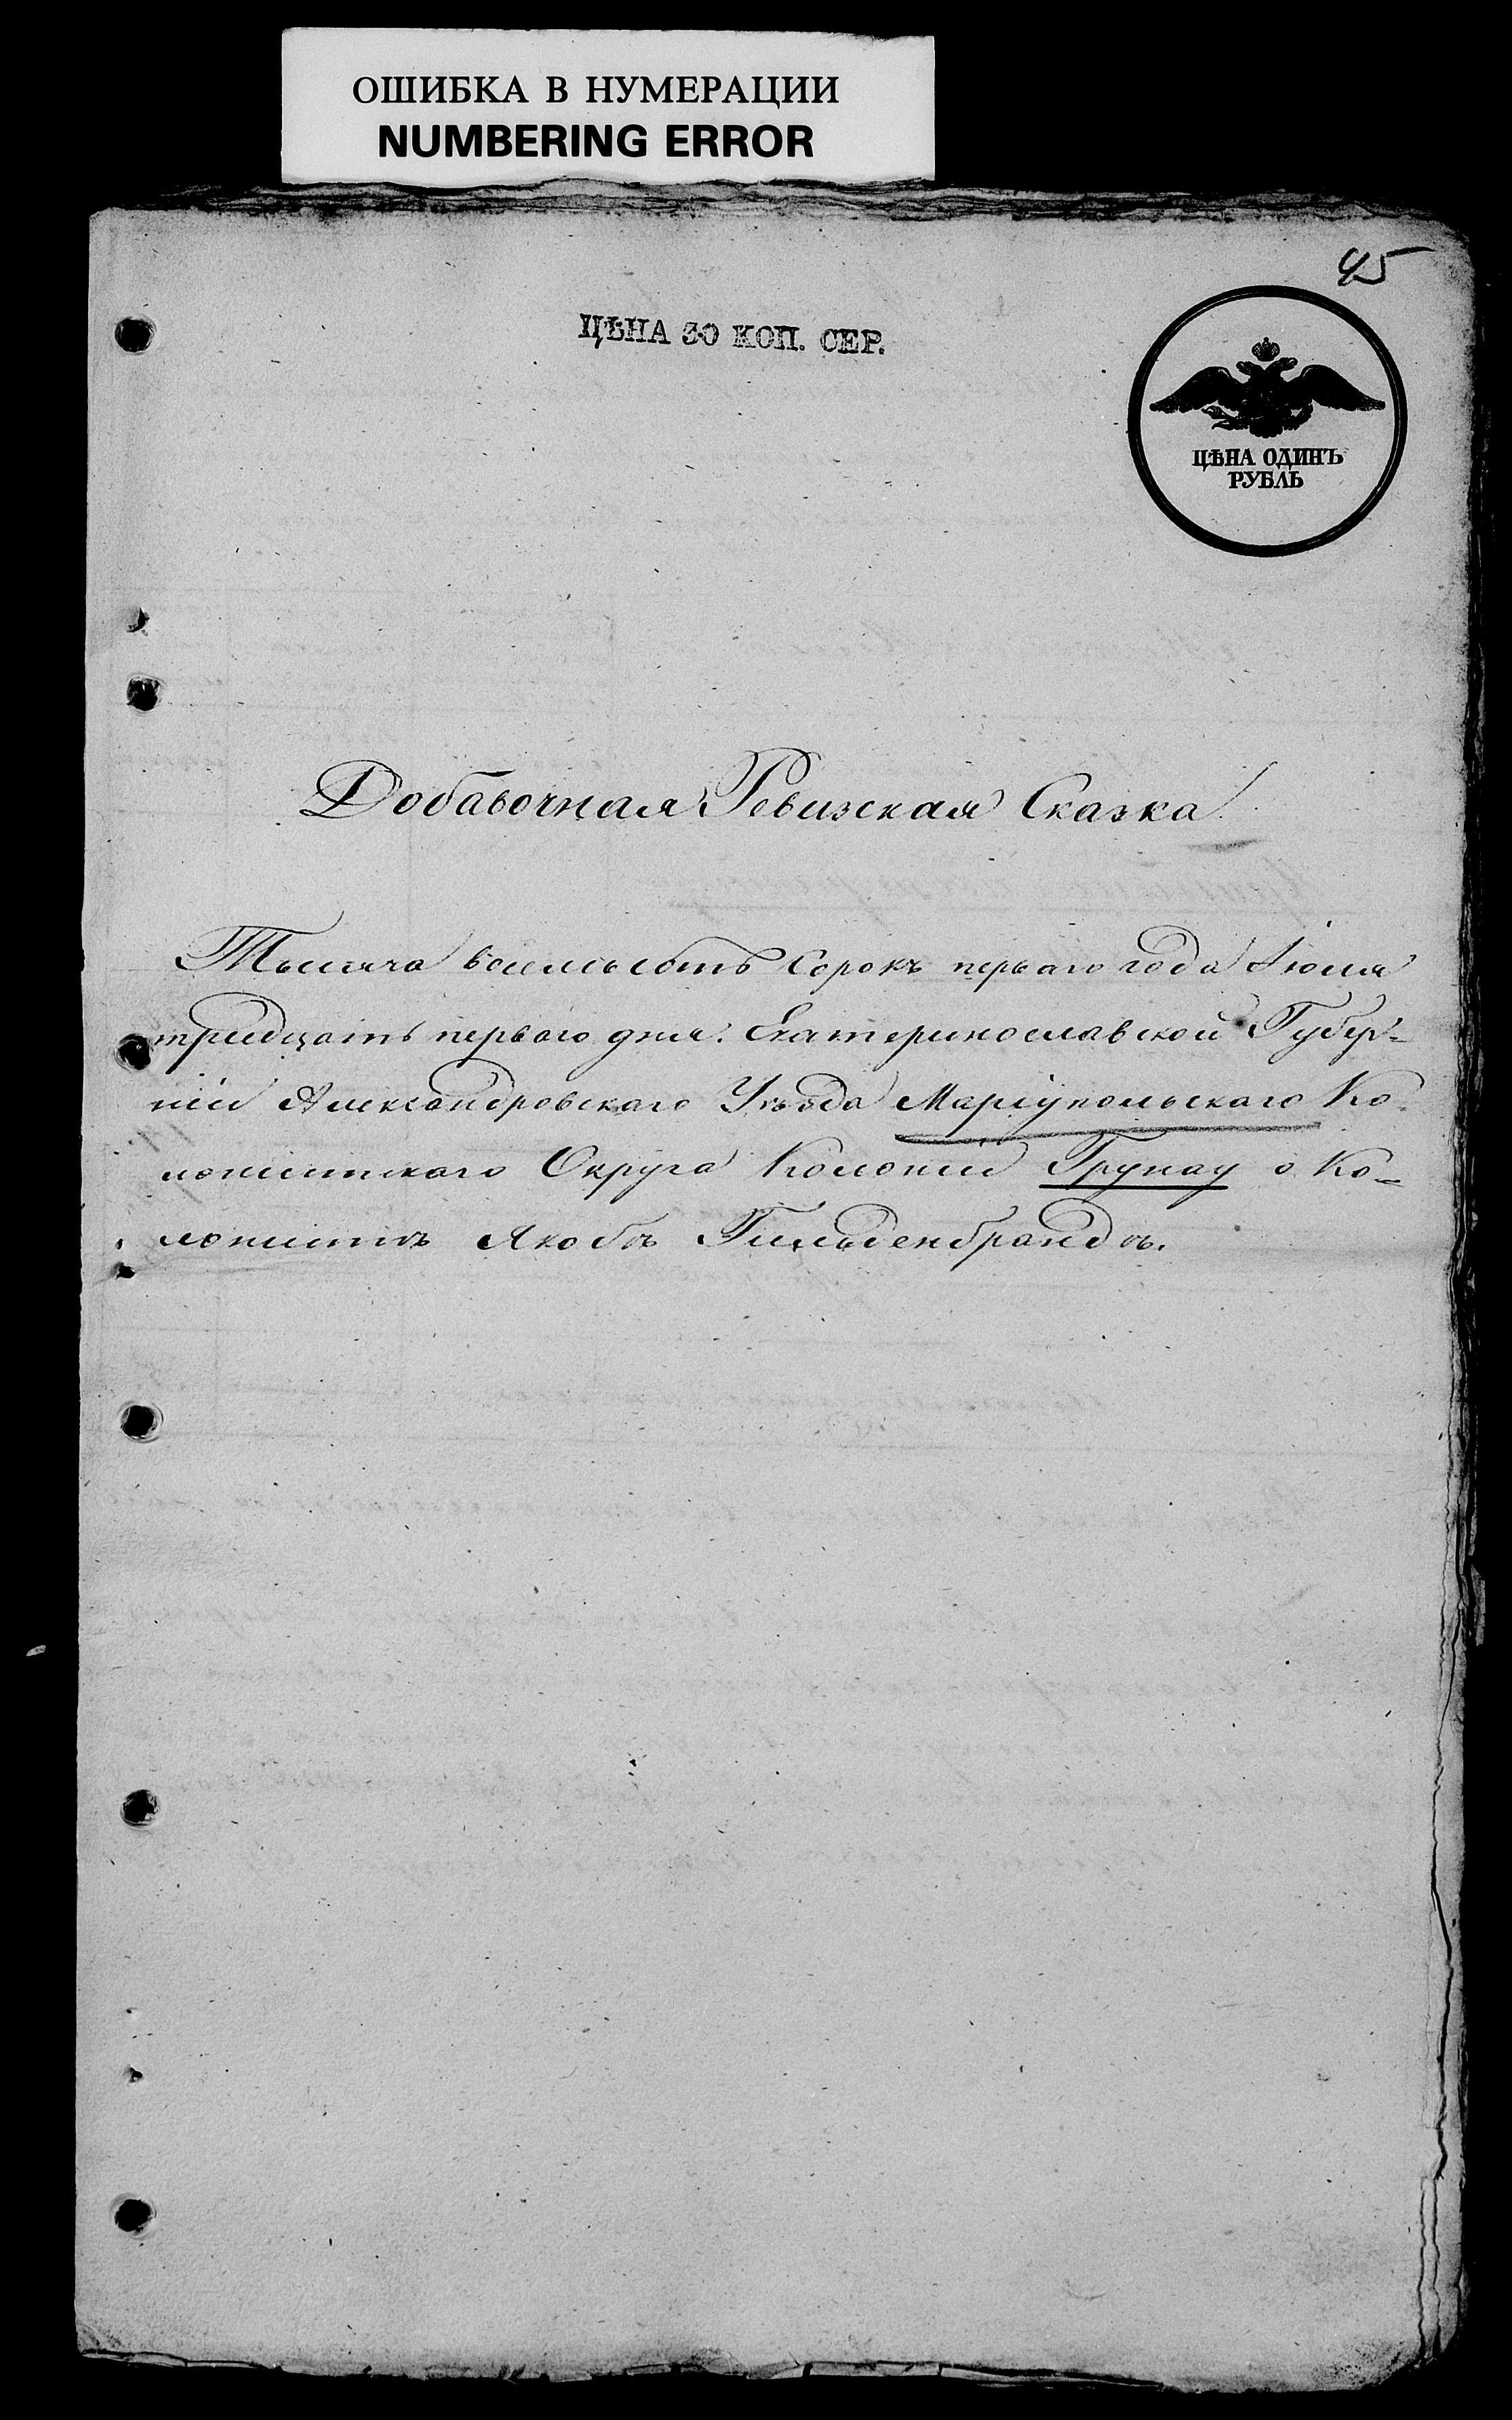 ОШИБКА В НУМЕРАЦИИ
NUMBERING ERROR
45
ЦѢНА 30 КОП. СЕР.
ЦѢНА ОДИНЪ
РУБЛЬ
Добавочная Ревизская Сказка.
Тысяча восемьсотъ сорокъ перваго года Іюля
тридцать перваго дня. Екатеринославской Губер-
ніи Александровскаго Уѣзда Маріупольскаго Ко-
лонистскаго Округа Колоніи Грунау о Ко-
лонистѣ Якобѣ Гильденбрандѣ.